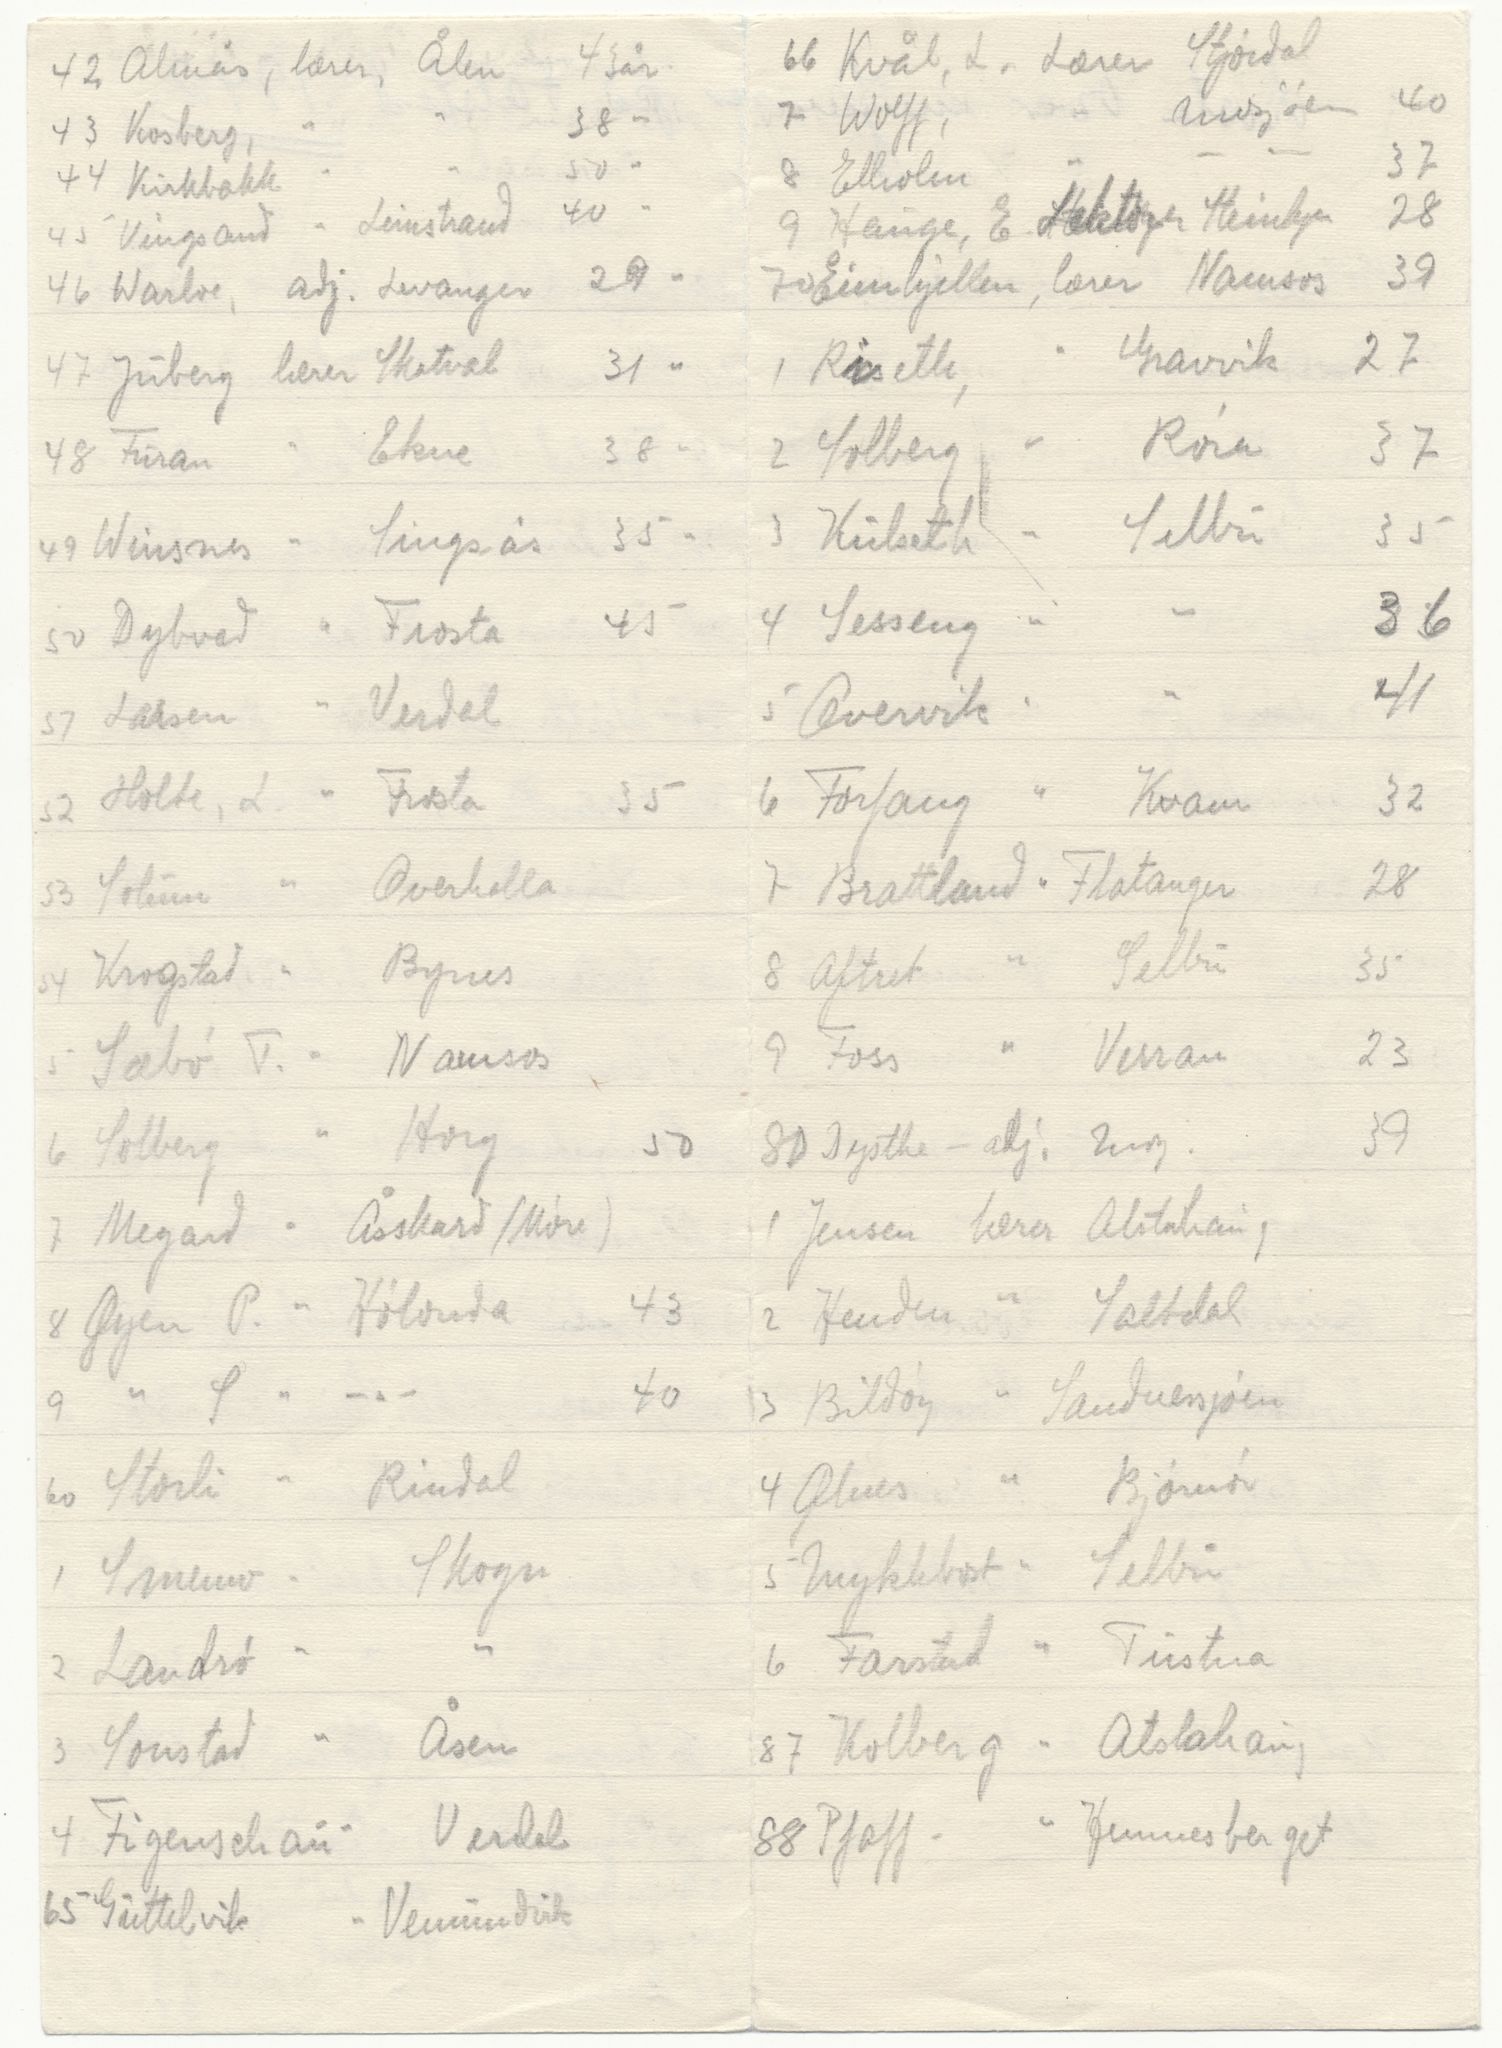 42 Almås, lærer, Ålen 43 år.
43 Kosberg, " " 38 "
44 Kirkbakk " " 50 "
45 Vingsand " Leinstrand 40 "
46 Warloe, adj. Levanger 29 "
47 Juberg lærer Skatval 31 "
48 Fūran " Ekne 38 "
49 Winsnes " Singsås 35 "
50 Dybvad " Frosta 45
51 Larsen " Verdal
52 Holte, L. " Frosta 35
53 Solūm " Overhalla
54 Krogstad " Bynes
5 Sæbö T. " Namsos
6 Solberg " Horg 50
7 Megard " Åsskard (Möre)
8 Øyen P. " Hölonda 43
9 " S " -"- 40
60 Storli " Rindal
1 Smemo " Skogn
2 Landrö " "
3 Sonstad " Åsen
4 Figenschaū " Verdal
65 Gūttelvik " Vemūndvik
66 Kvål, L. Lærer Stjördal
7 Wolff, " Mosjöen 40
8 Elholm " — — 37
9 Haūge, E. Steinkjer 28
70 Eimhjellen, lærer Namsos 39
1 Riseth, " Gravvik 27
2 Solberg " Röra 37
3 Kūlseth " Selbū 35
4 Sesseng " " 36
5 Overvik " " 41
6 Forfang " Kvam 32
7 Brattland " Flatanger 28
8 Aftret " Selbū 35
9 Foss " Verran 23
80 Dysthe - adj. Mosj. 39
1 Jensen lærer Alstahaūg
2 Henden " Saltdal
3 Bildöy " Sandnessjöen
4 Ølnes " Björnör
5 Myklebost " Selbū
6 Farstad " Tūstna
87 Kolberg " Alstahaūg
88 Pfaff - " Hemnesberget